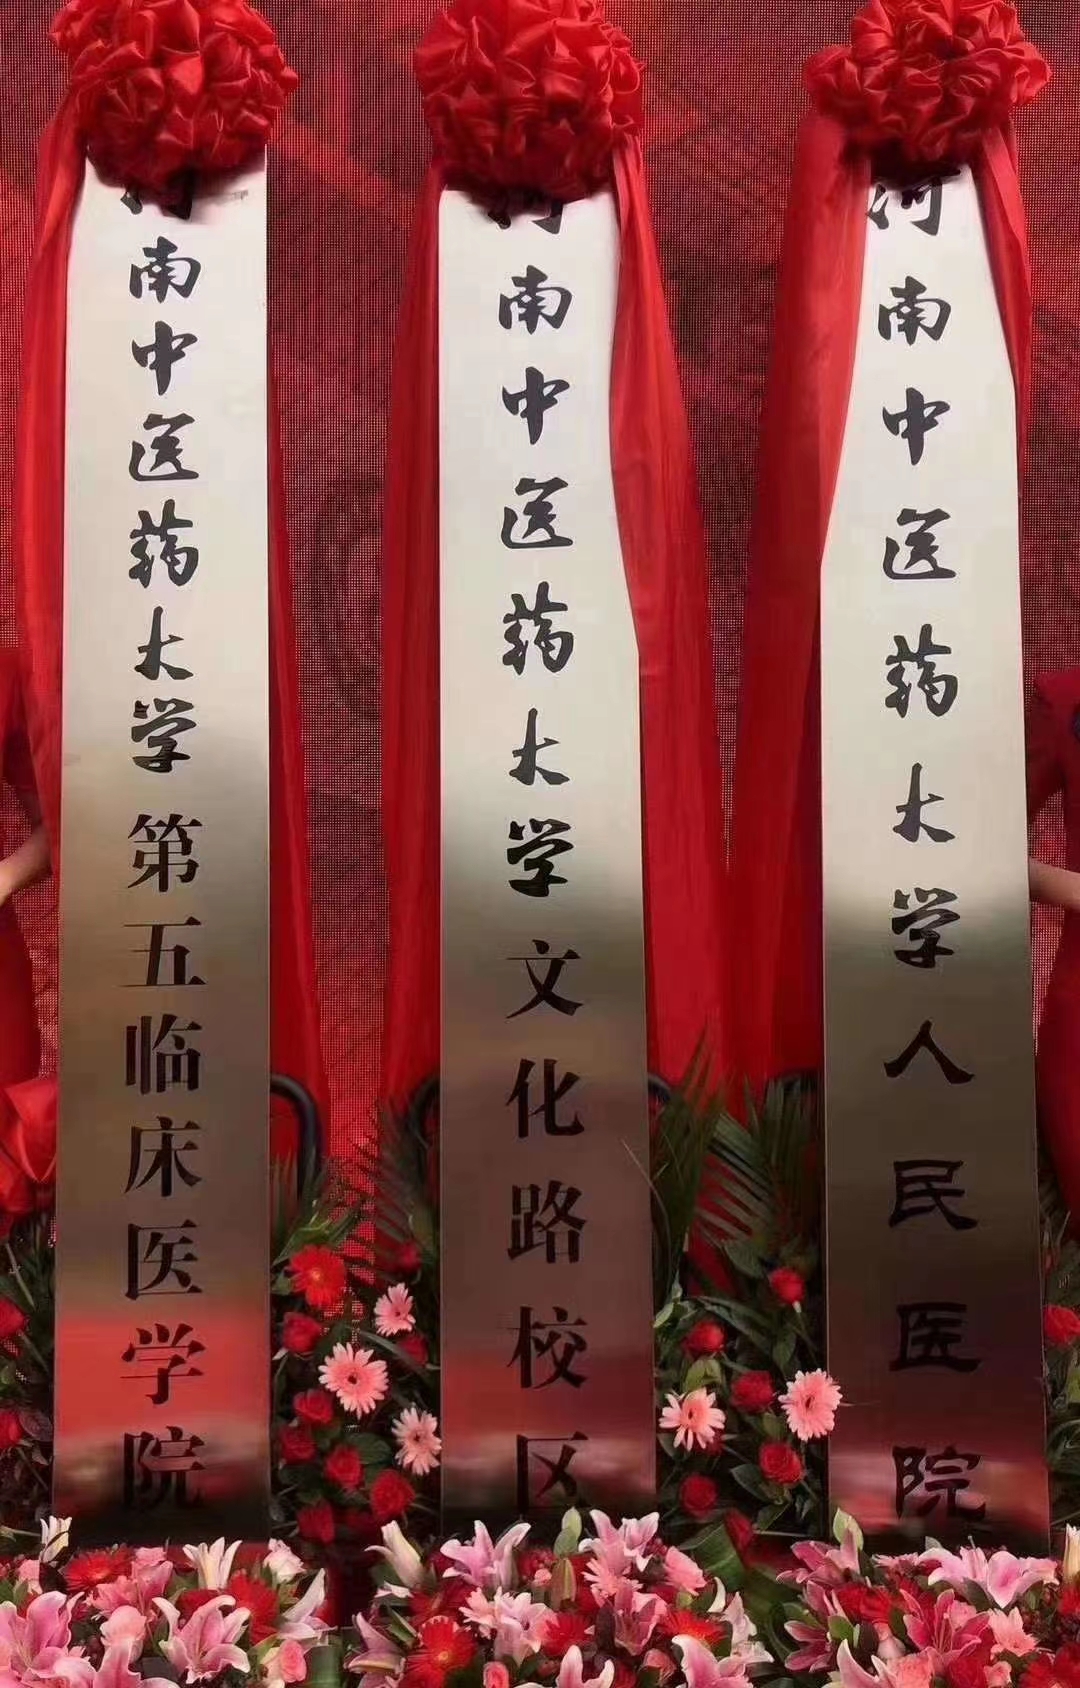 河南中医药大学第五临床医学院
河南中医药大学文化路校区
河南中医药大学人民医院